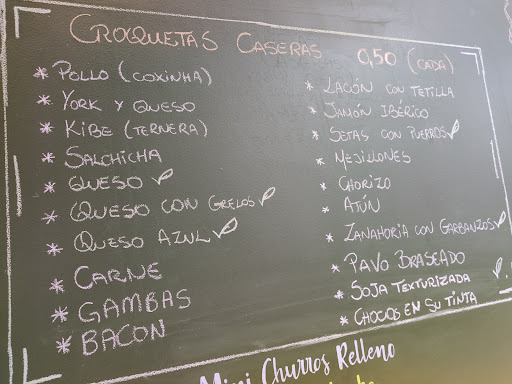 CROQUETAS CASERAS 0,50 (CADA)
* POLLO (COXINHA)
* YORK Y QUESO
* KIBE (TERNERA)
* SALCHICHA
* QUESO
* QUESO CON GRELOS
* QUESO AZUL
* CARNE
* GAMBAS
* BACON
* LACÓN CON TETILLA
* JAMÓN IBÉRICO
* SETAS CON PUERROS
* MEJILLONES
* CHORIZO
* ATÚN
* ZANAHORIA CON GARBANZOS
* PAVO BRASEADO
* SOJA TEXTURIZADA
* CHOCOS EN SU TINTA
Mini Churros Relleno